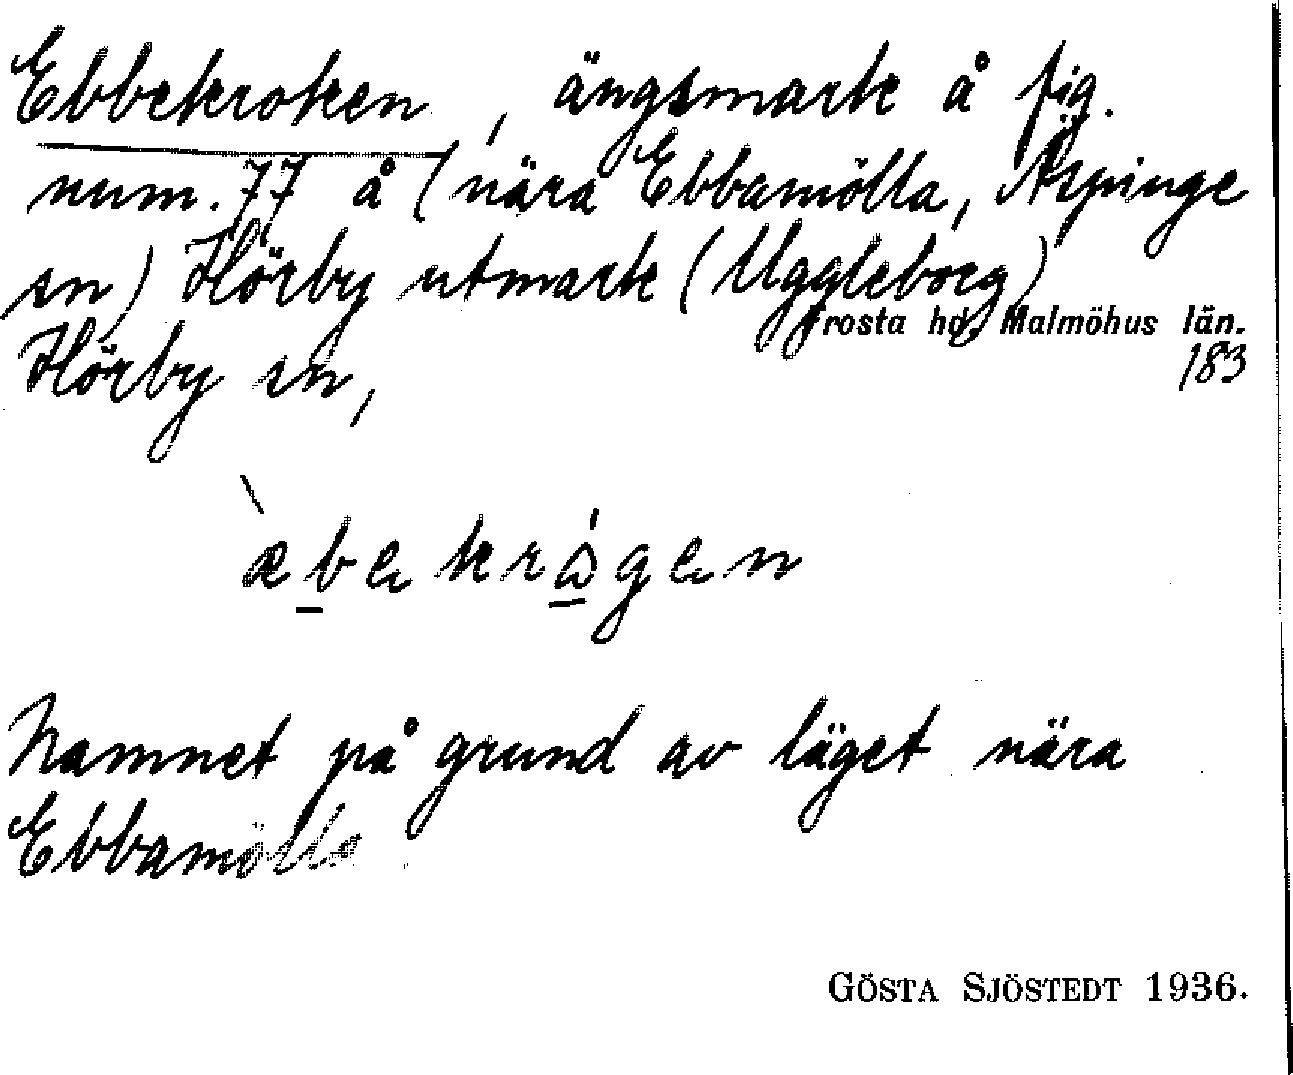 Ebbekroken, ängsmark å fig.
num. 77 å (nära Ebbamölla, Äspinge
sn) Hörby utmark (Uggleborg)
Frosta hd, Malmöhus län.
Hörby sn,
183
æbekrågen
Namnet på grund av läget nära
Ebbamölla.
GÖSTA SJÖSTEDT 1936.